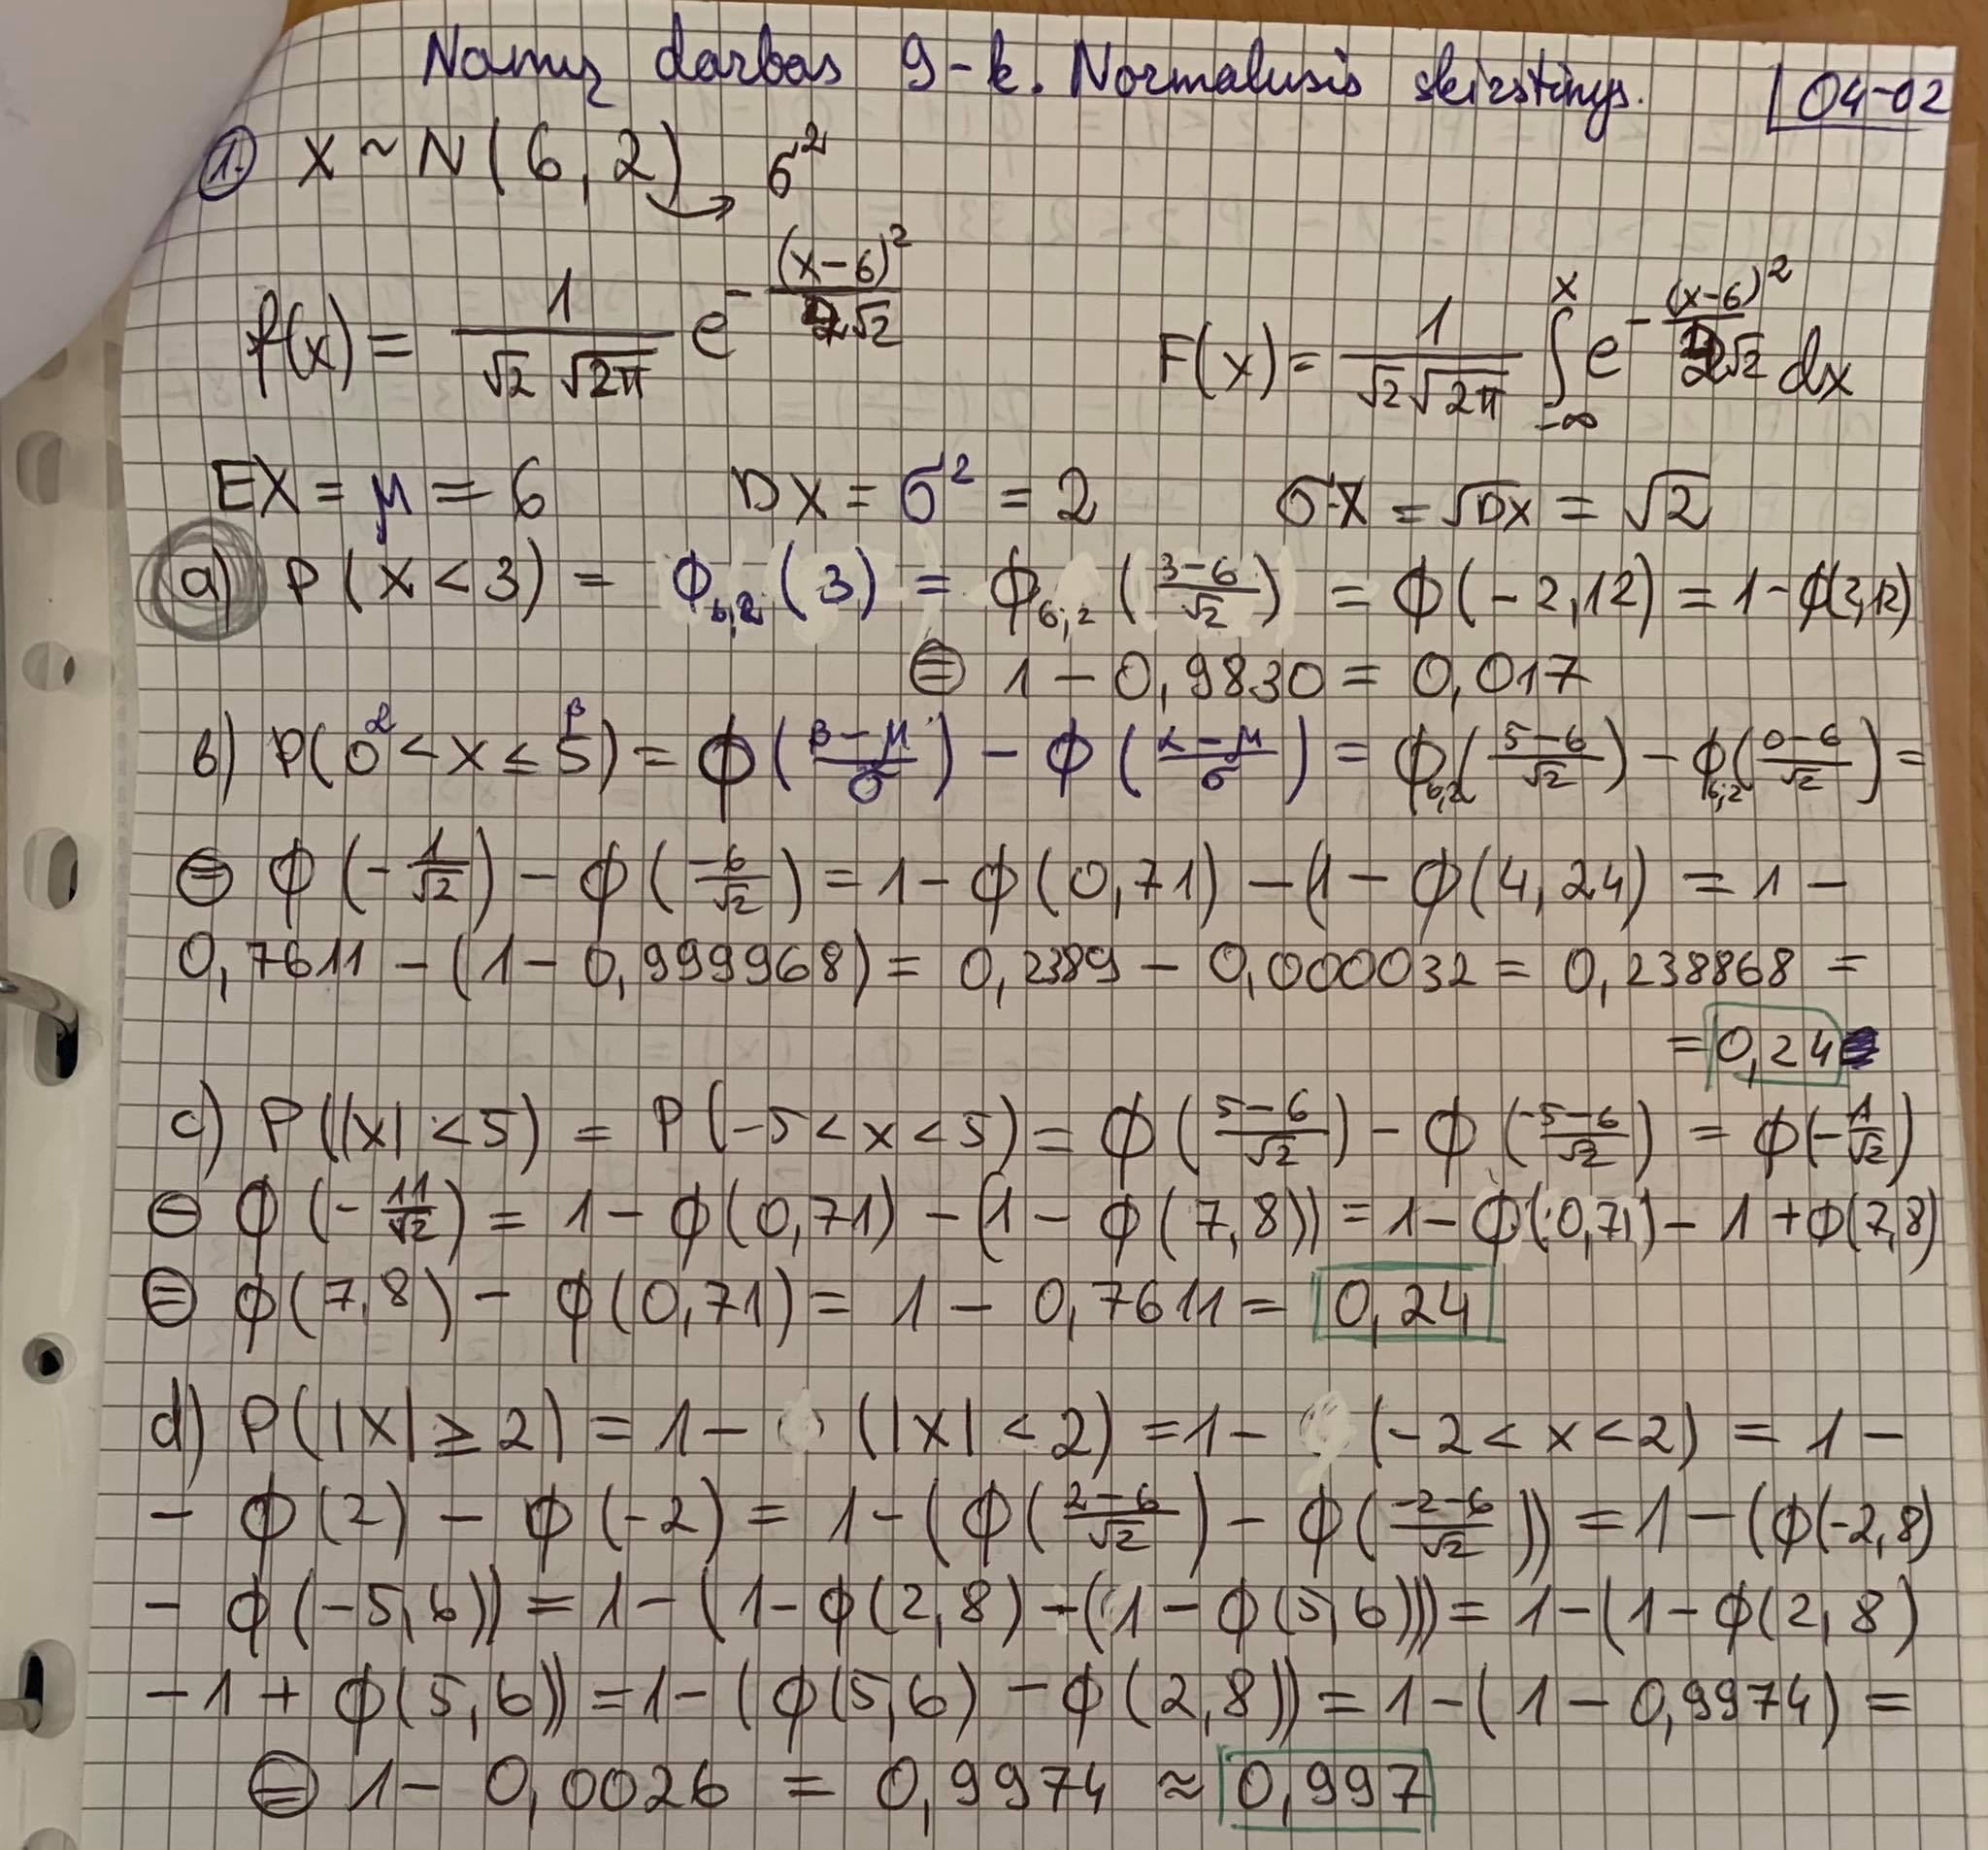 Namų darbas 9-k. Normalusis skirstinys. 04-02
1. X ~ N(6, 2) → σ²
f(x) = 1/(√2 √2π) e^(-(x-6)²/(2√2)) F(x) = 1/(√2 √2π) ∫_{-∞}^{x} e^(-(x-6)²/(2√2)) dx
EX = μ = 6 DX = σ² = 2 σX = √DX = √2
a) P(X < 3) = Φ_{6,2}(3) = Φ_{6,2}((3-6)/√2) = Φ(-2,12) = 1 - Φ(2,12)
= 1 - 0,9830 = 0,017
b) P(0^α < X ≤ 5^β) = Φ((β-μ)/σ) - Φ((α-μ)/σ) = Φ_{6,2}((5-6)/√2) - Φ_{6,2}((0-6)/√2) =
= Φ(-1/√2) - Φ(-6/√2) = 1 - Φ(0,71) - (1 - Φ(4,24) = 1 -
0,7611 - (1 - 0,999968) = 0,2389 - 0,000032 = 0,238868 =
= 0,24
c) P(|X| < 5) = P(-5 < X < 5) = Φ((5-6)/√2) - Φ((-5-6)/√2) = Φ(-1/√2)
⊖ Φ(-11/√2) = 1 - Φ(0,71) - (1 - Φ(7,8)) = 1 - Φ(0,71) - 1 + Φ(7,8)
= Φ(7,8) - Φ(0,71) = 1 - 0,7611 = 0,24
d) P(|X| ≥ 2) = 1 - (|X| < 2) = 1 - (-2 < X < 2) = 1 -
- Φ(2) - Φ(-2) = 1 - (Φ((2-6)/√2) - Φ((-2-6)/√2)) = 1 - (Φ(-2,8)
- Φ(-5,6)) = 1 - (1 - Φ(2,8) - (1 - Φ(5,6))) = 1 - (1 - Φ(2,8)
- 1 + Φ(5,6)) = 1 - (Φ(5,6) - Φ(2,8)) = 1 - (1 - 0,9974) =
= 1 - 0,0026 = 0,9974 ≈ 0,997